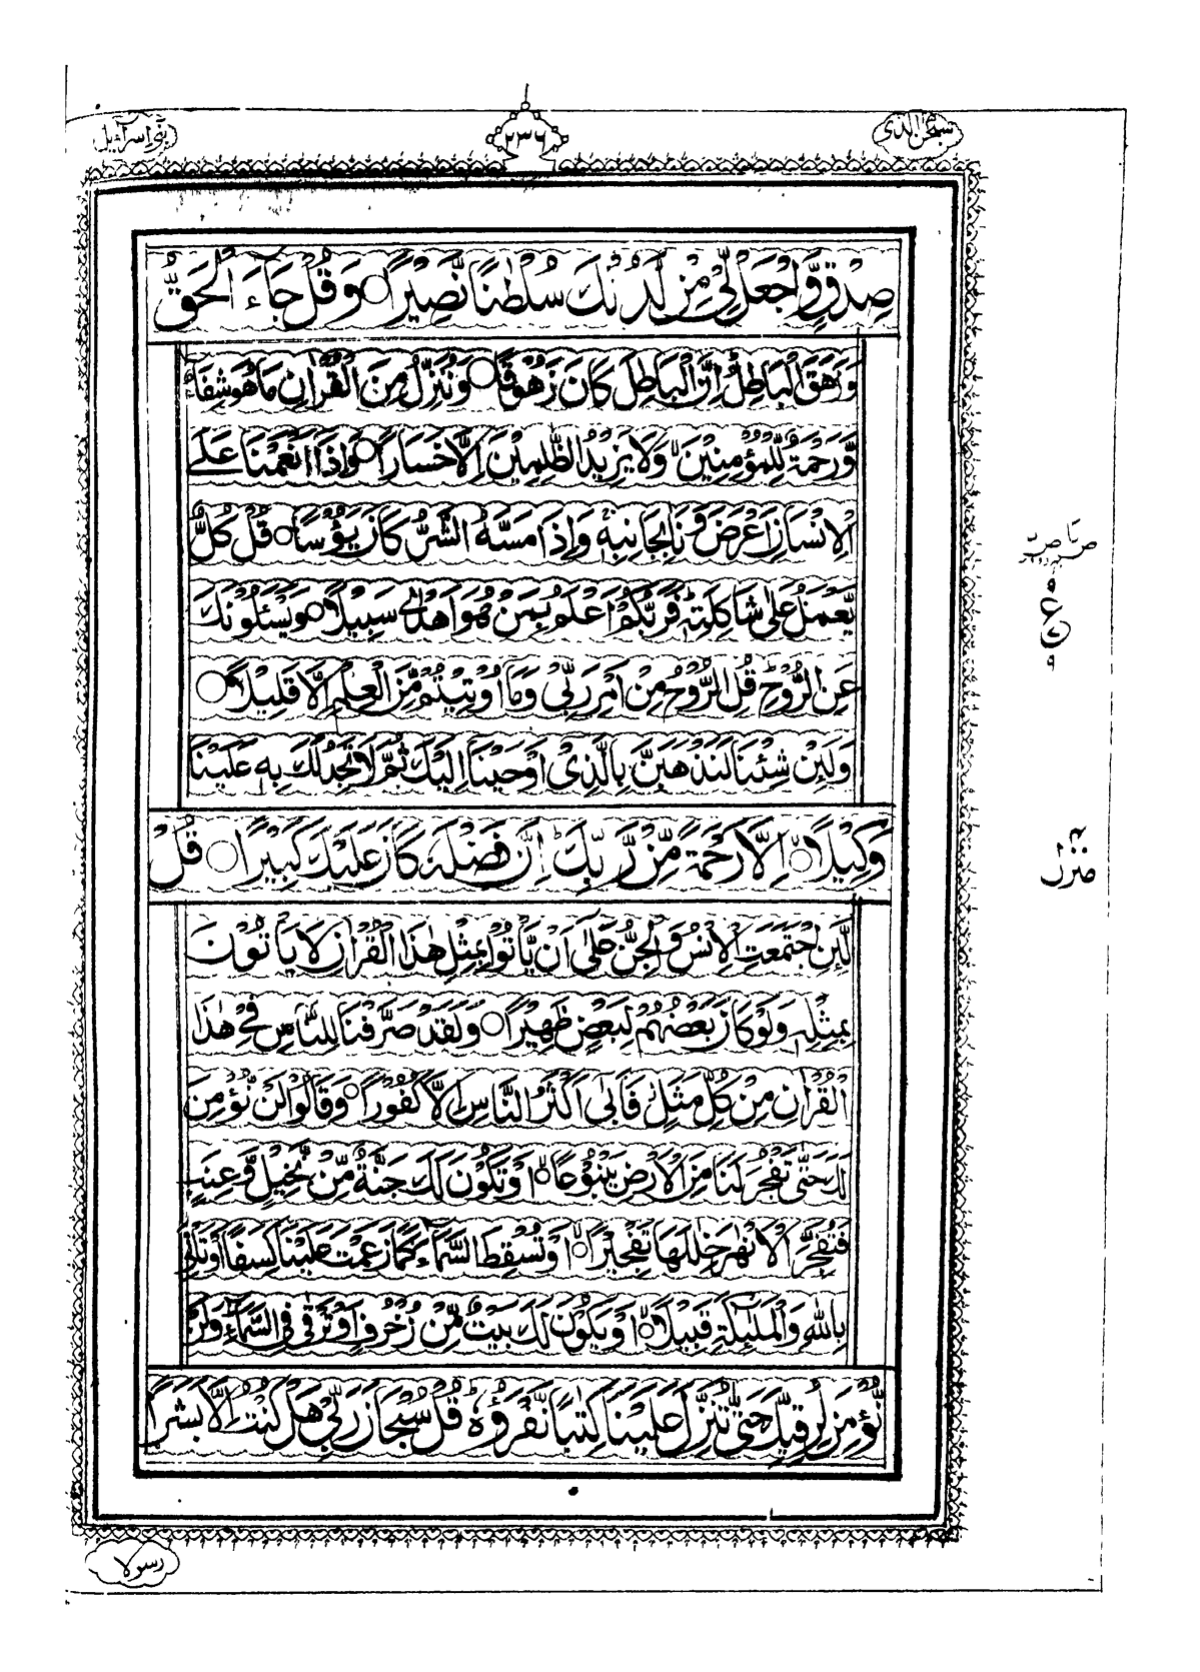 سبحٰن الذی
٢٣٦
بنی اسرآئیل
صِدْقٍ وَّاجْعَلْ لِّیْ مِنْ لَّدُنْكَ سُلْطٰنًا نَّصِیْرًا ○ وَقُلْ جَآءَ الْحَقُّ
وَزَهَقَ الْبَاطِلُ ؕ اِنَّ الْبَاطِلَ كَانَ زَهُوْقًا ○ وَنُنَزِّلُ مِنَ الْقُرْاٰنِ مَا هُوَ شِفَآءٌ
وَّرَحْمَةٌ لِّلْمُؤْمِنِیْنَ ۙ وَلَا یَزِیْدُ الظّٰلِمِیْنَ اِلَّا خَسَارًا ○ وَاِذَآ اَنْعَمْنَا عَلَی
الْاِنْسَانِ اَعْرَضَ وَنَاٰ بِجَانِبِهٖ ۚ وَاِذَا مَسَّهُ الشَّرُّ كَانَ یَـُٔوْسًا ○ قُلْ كُلٌّ
یَّعْمَلُ عَلٰی شَاكِلَتِهٖ ؕ فَرَبُّكُمْ اَعْلَمُ بِمَنْ هُوَ اَهْدٰی سَبِیْلًا ○ وَیَسْـَٔلُوْنَكَ
عَنِ الرُّوْحِ ؕ قُلِ الرُّوْحُ مِنْ اَمْرِ رَبِّیْ وَمَآ اُوْتِیْتُمْ مِّنَ الْعِلْمِ اِلَّا قَلِیْلًا ○
وَلَئِنْ شِئْنَا لَنَذْهَبَنَّ بِالَّذِیْٓ اَوْحَیْنَآ اِلَیْكَ ثُمَّ لَا تَجِدُ لَكَ بِهٖ عَلَیْنَا
وَكِیْلًا ○ اِلَّا رَحْمَةً مِّنْ رَّبِّكَ ؕ اِنَّ فَضْلَهٗ كَانَ عَلَیْكَ كَبِیْرًا ○ قُلْ
لَّئِنِ اجْتَمَعَتِ الْاِنْسُ وَالْجِنُّ عَلٰٓی اَنْ یَّاْتُوْا بِمِثْلِ هٰذَا الْقُرْاٰنِ لَا یَاْتُوْنَ
بِمِثْلِهٖ وَلَوْ كَانَ بَعْضُهُمْ لِبَعْضٍ ظَهِیْرًا ○ وَلَقَدْ صَرَّفْنَا لِلنَّاسِ فِیْ هٰذَا
الْقُرْاٰنِ مِنْ كُلِّ مَثَلٍ ؗ فَاَبٰٓی اَكْثَرُ النَّاسِ اِلَّا كُفُوْرًا ○ وَقَالُوْا لَنْ نُّؤْمِنَ
لَكَ حَتّٰی تَفْجُرَ لَنَا مِنَ الْاَرْضِ یَنْۢبُوْعًا ○ اَوْ تَكُوْنَ لَكَ جَنَّةٌ مِّنْ نَّخِیْلٍ وَّعِنَبٍ
فَتُفَجِّرَ الْاَنْهٰرَ خِلٰلَهَا تَفْجِیْرًا ○ اَوْ تُسْقِطَ السَّمَآءَ كَمَا زَعَمْتَ عَلَیْنَا كِسَفًا اَوْ تَاْتِیَ
بِاللّٰهِ وَالْمَلٰٓئِكَةِ قَبِیْلًا ○ اَوْ یَكُوْنَ لَكَ بَیْتٌ مِّنْ زُخْرُفٍ اَوْ تَرْقٰی فِی السَّمَآءِ ؕ وَلَنْ
نُّؤْمِنَ لِرُقِیِّكَ حَتّٰی تُنَزِّلَ عَلَیْنَا كِتٰبًا نَّقْرَؤُهٗ ؕ قُلْ سُبْحَانَ رَبِّیْ هَلْ كُنْتُ اِلَّا بَشَرًا
٩
ع
٩
منزل ٤
رسولا